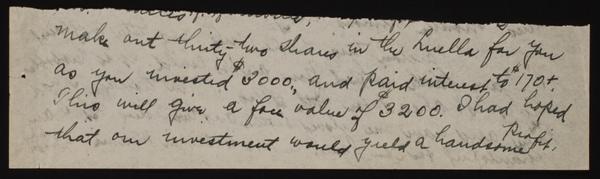 make out thirty-two shares in the Luella for you
as you invested $3000., and paid interest to $170+.
This will give a face value of $3200. I had hoped
that our investment would yield a handsome profit.